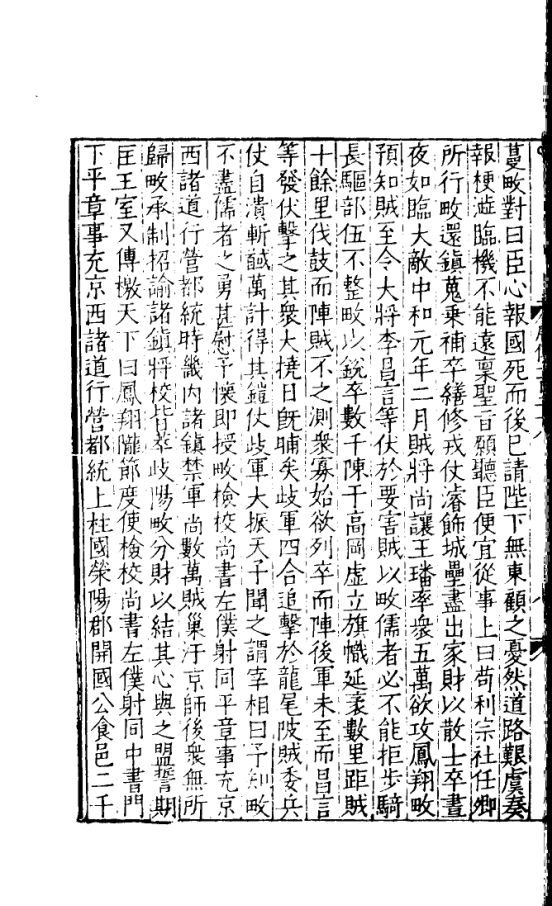 蔓畋對曰臣心報國死而後已請陛下無東顧之憂然道路艱虞奏
報梗澁臨機不能遠稟聖旨願聽臣便宜從事上曰苟利宗社任卿
所行畋還鎮蒐乗補卒繕修戎仗濬飾城壘盡出家財以散士卒晝
夜如臨大敵中和元年二月賊將尚讓王璠率衆五萬欲攻鳳翔畋
預知賊至令大將李昌言等伏於要害賊以畋儒者必不能拒步騎
長驅部伍不整畋以銳卒數千陳于高岡虛立旗幟延袤數里距賊
十餘里伐鼓而陣賊不之測衆寡始欲列卒而陣後軍未至而昌言
等發伏擊之其衆大撓日旣晡矣歧軍四合追擊於龍尾陂賊委兵
仗自潰斬馘萬計得其鎧仗歧軍大振天子聞之謂宰相曰予知畋
不盡儒者之勇甚慰予懷即授畋檢校尚書左僕射同平章事充京
西諸道行營都統時畿內諸鎮禁軍尚數萬賊巢汙京師後衆無所
歸畋承制招諭諸鎮將校皆萃歧陽畋分財以結其心與之盟誓期
匡王室又傳檄天下曰鳳翔隴節度使檢校尚書左僕射同中書門
下平章事充京西諸道行營都統上柱國滎陽郡開國公食邑二千